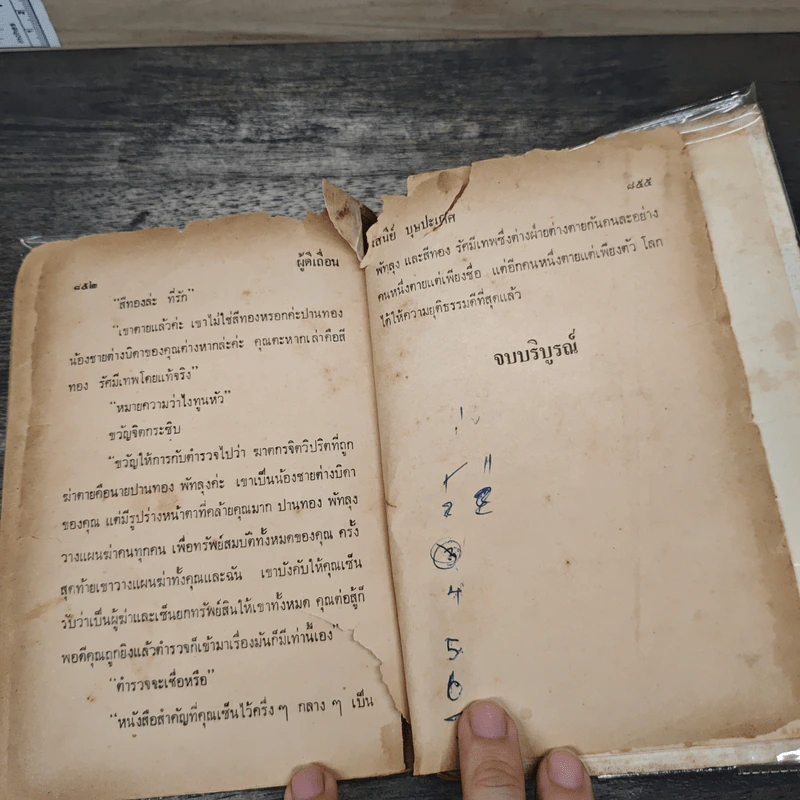 ๘๕๒
ผู้ดีเถื่อน
"สีทองล่ะ ที่รัก"
"เขาตายแล้วค่ะ เขาไม่ใช่สีทองหรอกค่ะปานทอง
น้องชายต่างบิดาของคุณต่างหากล่ะค่ะ คุณตะหากเล่าคือสี
ทอง รัศมีเทพโดยแท้จริง"
"หมายความว่าไงทูนหัว"
ขวัญจิตกระซิบ
"ขวัญให้การกับตำรวจไปว่า ฆาตกรจิตวิปริตที่ถูก
ฆ่าตายคือนายปานทอง พัทลุงค่ะ เขาเป็นน้องชายต่างบิดา
ของคุณ แต่มีรูปร่างหน้าตาที่คล้ายคุณมาก ปานทอง พัทลุง
วางแผนฆ่าคนทุกคน เพื่อทรัพย์สมบัติทั้งหมดของคุณ ครั้ง
สุดท้ายเขาวางแผนฆ่าทั้งคุณและฉัน เขาบังคับให้คุณเซ็น
รับว่าเป็นผู้ฆ่าและเซ็นยกทรัพย์สินให้เขาทั้งหมด คุณต่อสู้ก็
พอดีคุณถูกยิงแล้วตำรวจก็เข้ามาเรื่องมันก็มีเท่านี้เอง"
"ตำรวจจะเชื่อหรือ"
"หนังสือสำคัญที่คุณเซ็นไว้ครึ่ง ๆ กลาง ๆ เป็น
เสนีย์ บุษปะเกศ
๘๕๕
พัทลุง และสีทอง รัศมีเทพซึ่งต่างฝ่ายต่างตายกันคนละอย่าง
คนหนึ่งตายแต่เพียงชื่อ แต่อีกคนหนึ่งตายแต่เพียงตัว โลก
ได้ให้ความยุติธรรมดีที่สุดแล้ว
จบบริบูรณ์
2 2
3
4
5
6